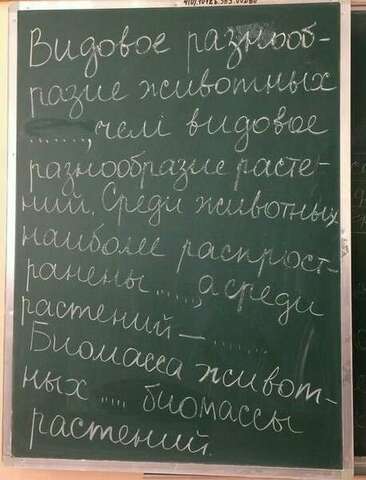 Видовое разнооб-
разие животных
......, чем видовое
разнообразие расте-
ний. Среди животных
наиболее распрост-
ранены ......, а среди
растений — ......
Биомасса живот-
ных .... биомассы
растений.